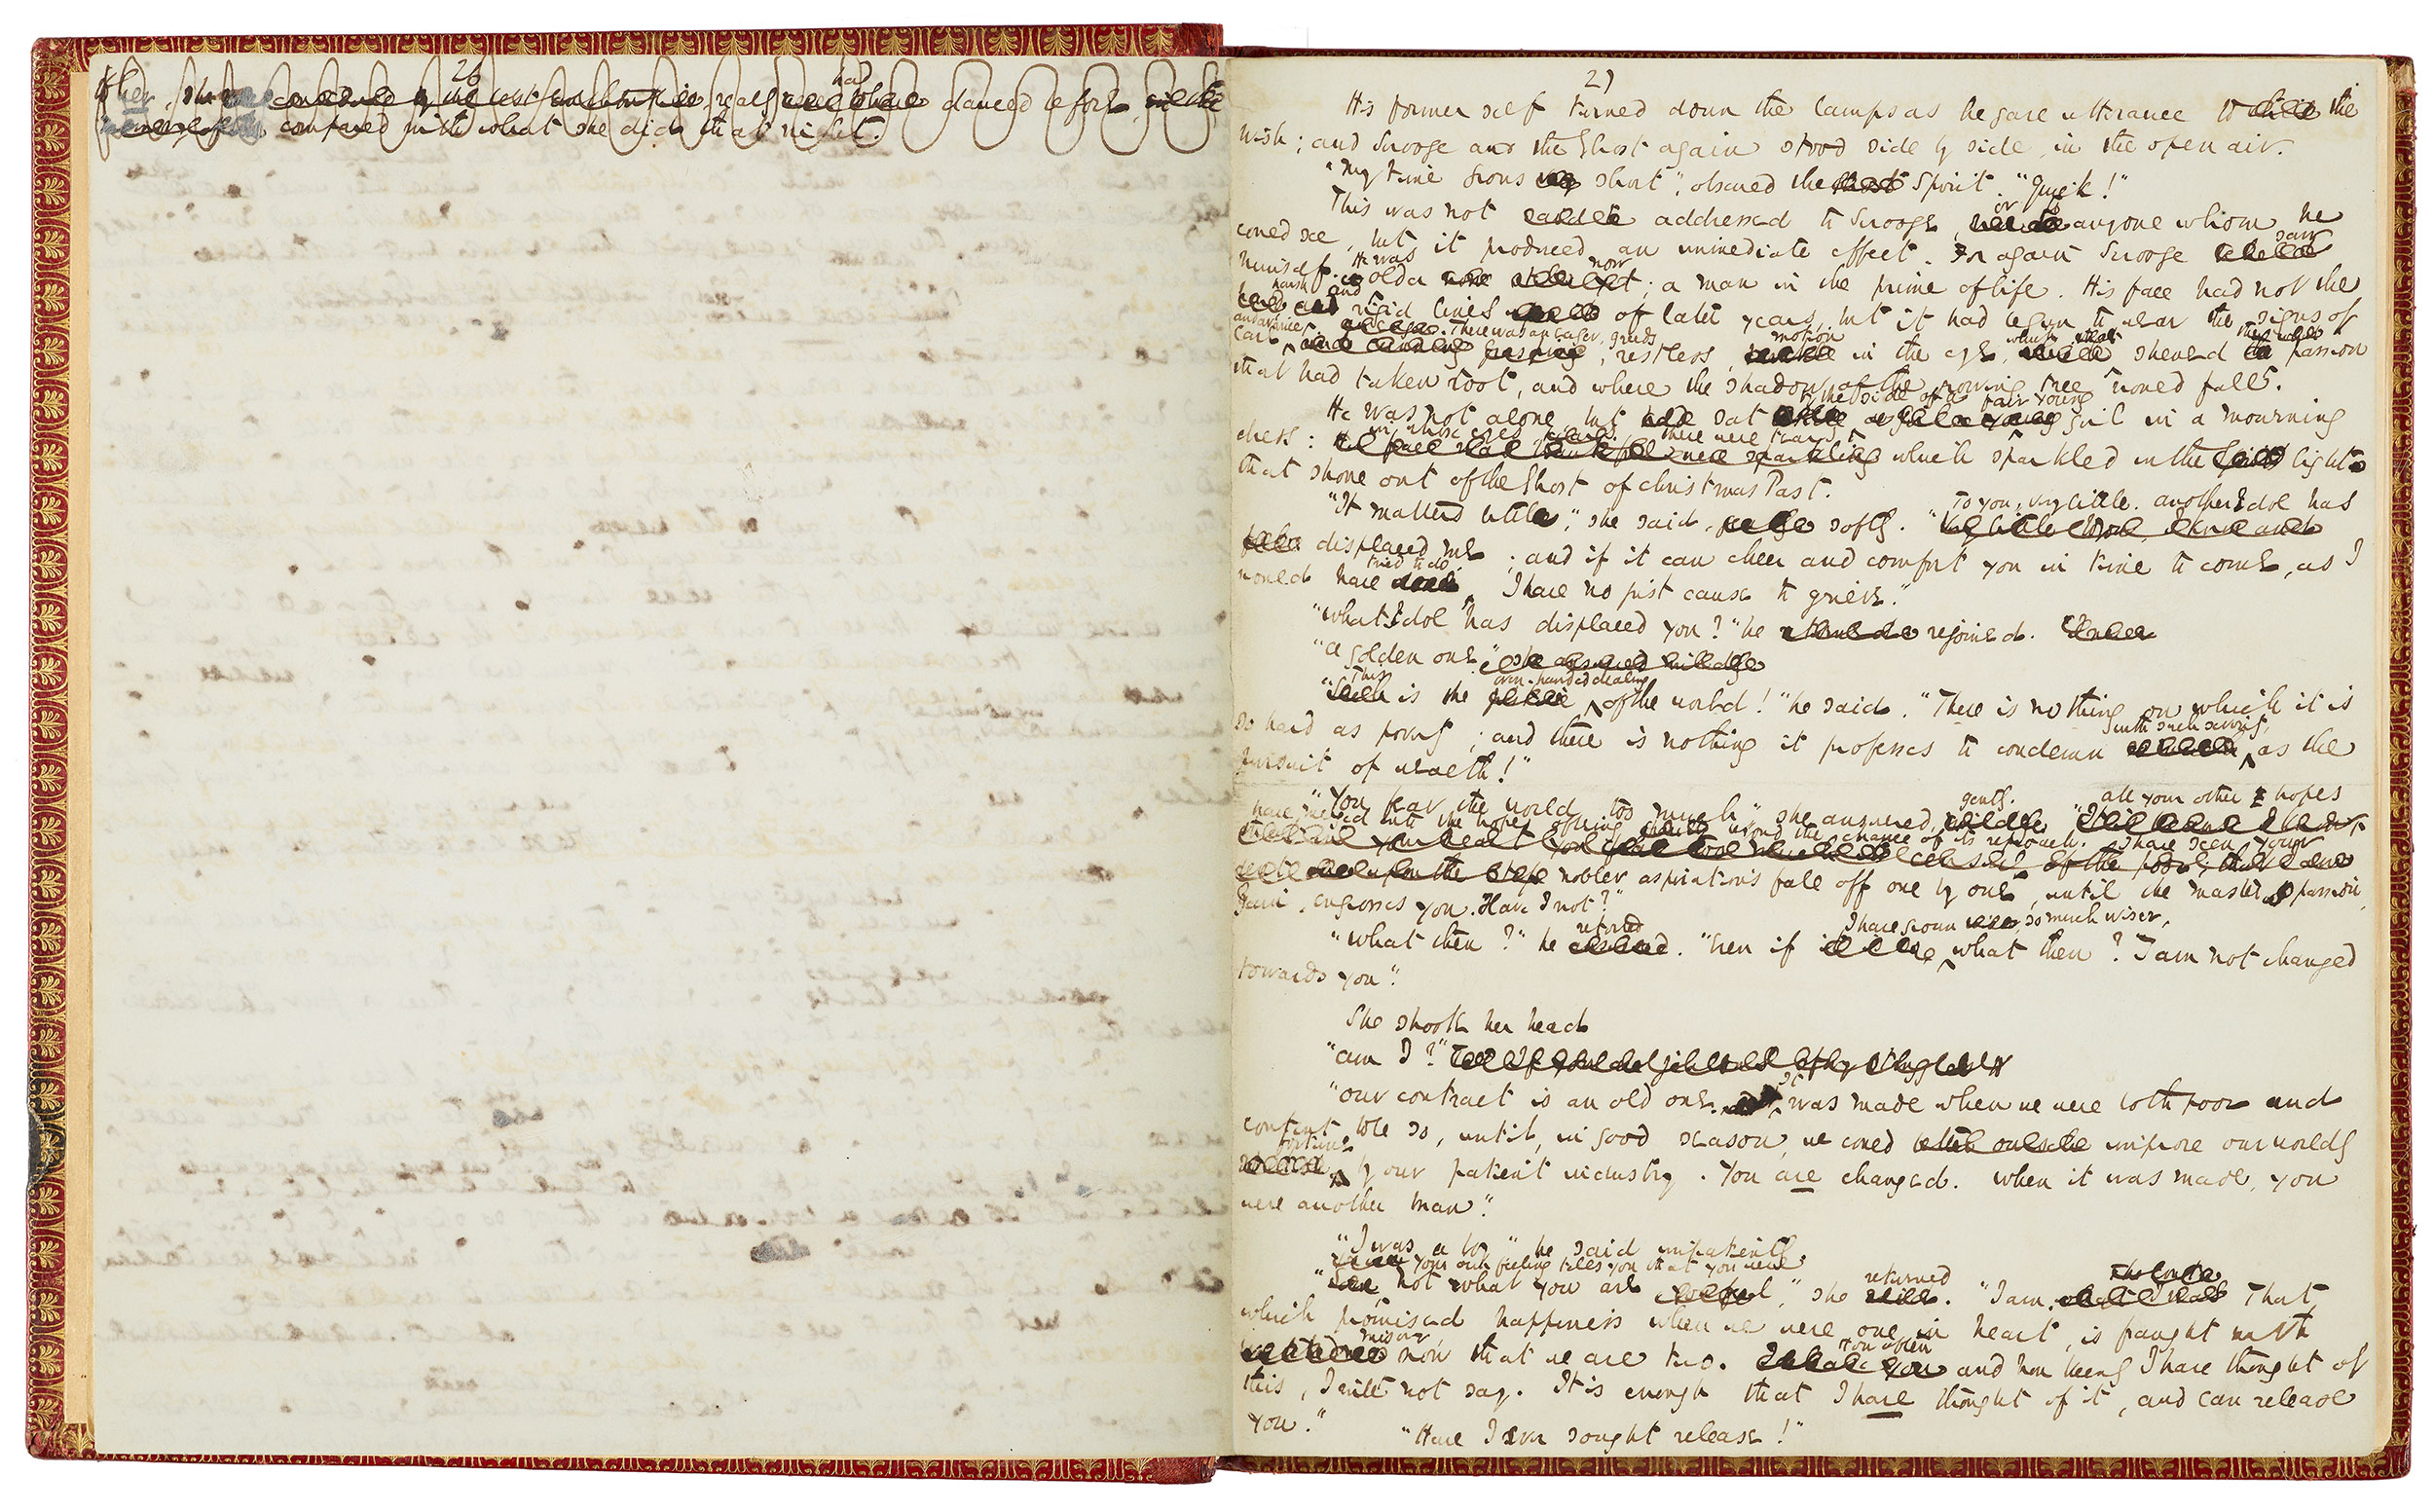 26
had
her, she danced before
compared with what she did that night.
27
His former self turned down the lamps as he gave utterance to the
wish; and Scrooge and the Ghost again stood side by side in the open air.
"My time grows short", observed the Spirit. "Quick!"
or to
This was not addressed to Scrooge, anyone whom he
could see, but it produced an immediate effect. For again Scrooge saw
himself. He was older now; a man in the prime of life. His face had not the
harsh and rigid lines of later years, but it had begun to wear the signs of
care and avarice. There was an eager, greedy, restless, motion in the eye, which showed the passion
that had taken root, and where the shadow of the growing tree would fall.
He was not alone, but sat by the side of a fair young girl in a mourning
dress: in whose eyes there were tears, which sparkled in the light
that shone out of the Ghost of Christmas Past.
"It matters little," she said, softly. "To you, very little. Another Idol has
displaced me; and if it can cheer and comfort you in time to come, as I
would have tried to do, I have no just cause to grieve."
"What Idol has displaced you?" he rejoined.
"A golden one."
"This is the even-handed dealing of the world!" he said. "There is nothing on which it is
so hard as poverty; and there is nothing it professes to condemn with such severity, as the
pursuit of wealth!"
"You fear the world too much", she answered, gently. "All your other hopes
have merged into the hope of being beyond the chance of its reproach. I have seen your
nobler aspirations fall off one by one, until the master passion,
Gain, engrosses you. Have I not?"
"What then?" he retorted. "Even if I have grown so much wiser, what then? I am not changed
towards you."
She shook her head
"Am I?"
"Our contract is an old one. It was made when we were both poor and
content to be so, until, in good season, we could improve our worldly
fortune by our patient industry. You are changed. When it was made, you
were another man."
"I was a boy" he said impatiently
"Your own feeling tells you that you were
not what you are," she returned. "I am. That
which promised happiness when we were one in heart, is fraught with
misery now that we are two. How often and how keenly I have thought of
this, I will not say. It is enough that I have thought of it, and can release
you."
"Have I ever sought release!"